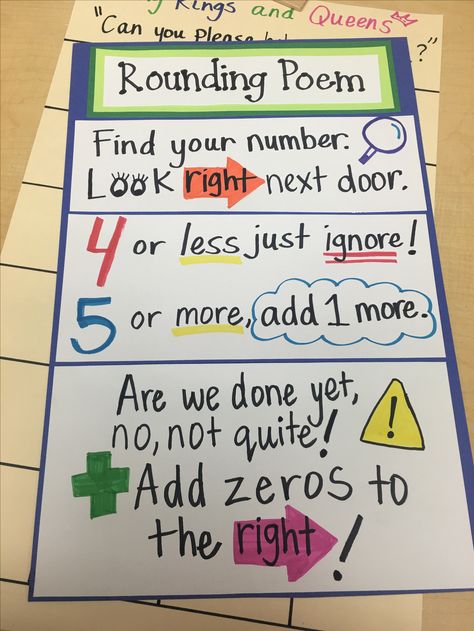 Kings and Queens
"Can you please
?"
Rounding Poem
Find your number.
Look right next door.
4 or less just ignore!
5 or more, add 1 more.
Are we done yet,
no, not quite!
!
Add zeros to
the right!